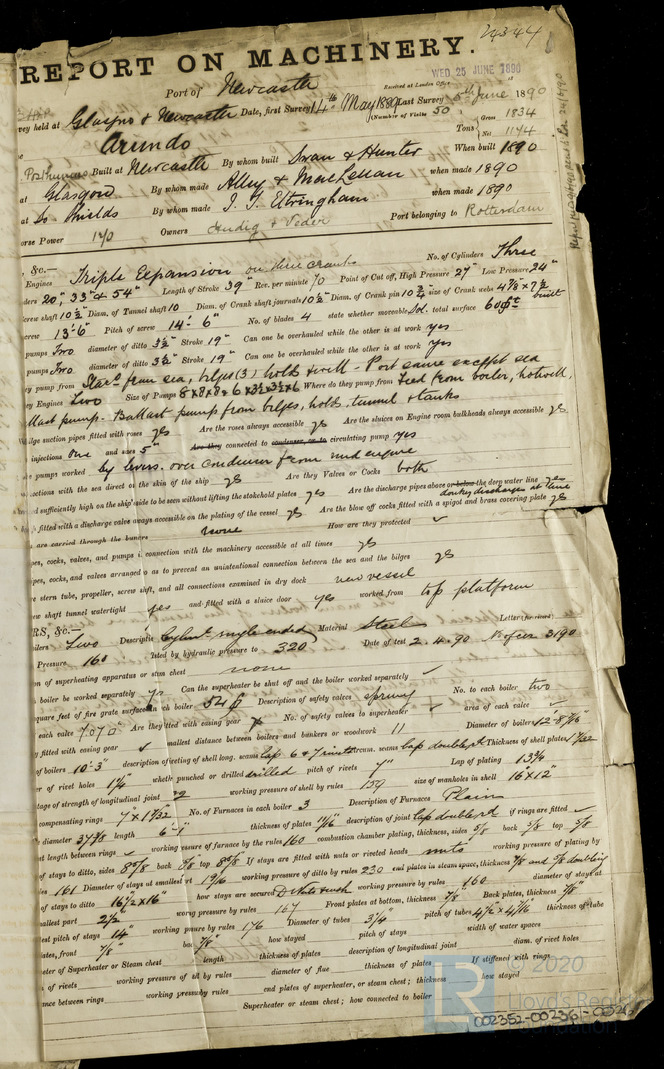 24344
REPORT ON MACHINERY.
Received at London Office
WED 25 JUNE 1890
Port of Newcastle
vey held at Glasgow & Newcastle Date, first Survey 14th May 1890 Last Survey June 1890
(Number of Visits 50)
Arundo
Tons Gross 1834
Net 1174
Built at Newcastle By whom built Swan & Hunter When built 1890
at Glasgow By whom made Alley & MacLellan when made 1890
at So Shields By whom made J. T. Eltringham when made 1890
orse Power 170 Owners Port belonging to Rotterdam
, &c.—
Engines Triple Expansion on three cranks No. of Cylinders Three
ders 20", 33" & 54" Length of Stroke 39" Rev. per minute 70 Point of Cut off, High Pressure 27" Low Pressure 24"
crew shaft 10½" Diam. of Tunnel shaft 10 Diam. of Crank shaft journals 10½" Diam. of Crank pin size of Crank webs built
crew 13'-6" Pitch of screw 14'-6" No. of blades 4 state whether moveable Sol. total surface
pumps Two diameter of ditto 3½" Stroke 19" Can one be overhauled while the other is at work yes
pumps Two diameter of ditto 3½" Stroke 19" Can one be overhauled while the other is at work yes
ey pump from Starbd from sea, bilges (3) hold & well - Port same except sea
ey Engines Two Size of Pumps Where do they pump from Feed from boiler, hotwell,
llast pump. Ballast pump from bilges, hold, tunnel & tanks
bilge suction pipes fitted with roses yes Are the roses always accessible yes Are the sluices on Engine room bulkheads always accessible yes
injections One and sizes 5" Are they connected to condenser, or to circulating pump yes
e pumps worked by levers over condenser from mid engine
nections with the sea direct on the skin of the ship yes Are they Valves or Cocks both
ed sufficiently high on the ship's side to be seen without lifting the stokehold plates yes Are the discharge pipes above or below the deep water line yes
donkey discharges at line
fitted with a discharge valve always accessible on the plating of the vessel yes Are the blow off cocks fitted with a spigot and brass covering plate yes
s are carried through the bunkers none How are they protected ✓
pes, cocks, valves, and pumps in connection with the machinery accessible at all times yes
pes, cocks, and valves arranged so as to prevent an unintentional connection between the sea and the bilges yes
e stern tube, propeller, screw shaft, and all connections examined in dry dock new vessel
ew shaft tunnel watertight yes and fitted with a sluice door yes worked from top platform
RS, &c.—
oilers Two Description Cylindl single ended Material Steel Letter (for record)
Pressure 160 tested by hydraulic pressure to 320 Date of test 2.4.90 No of cer 3190
on of superheating apparatus or steam chest none
boiler be worked separately yes Can the superheater be shut off and the boiler worked separately ✓
quare feet of fire grate surface in each boiler 52 Description of safety valves spring No. to each boiler two
each valve 7.07 Are they fitted with easing gear yes No. of safety valves to superheater ✓ area of each valve ✓
y fitted with easing gear ✓ smallest distance between boilers and bunkers or woodwork 11 Diameter of boilers
of boilers 10'-3" description of riveting of shell long. seams lap circum. seams lap double rd Thickness of shell plates
er of rivet holes 1¼" whether punched or drilled drilled pitch of rivets 7" Lap of plating 13¾
tage of strength of longitudinal joint 79 working pressure of shell by rules 159 size of manholes in shell 16 x 12"
compensating rings 7 x 1 9/32 No. of Furnaces in each boiler 3 Description of Furnaces Plain
e diameter length 6'-1" thickness of plates 11/16" description of joint lap double rd if rings are fitted ✓
st length between rings ✓ working pressure of furnace by the rules 160 combustion chamber plating, thickness, sides 5/8 back 5/8 top 5/8
of stays to ditto, sides back top If stays are fitted with nuts or riveted heads nuts working pressure of plating by
es 161 Diameter of stays at smallest part working pressure of ditto by rules 230 end plates in steam space, thickness 7/8 and 5/8 doubling
of stays to ditto 16½ x 16" how stays are secured working pressure by rules 160 diameter of stays at
allest part working pressure by rules 167 Front plates at bottom, thickness 7/8" Back plates, thickness
est pitch of stays 14" working pressure by rules 176 Diameter of tubes 3¼" pitch of tubes thickness of tube
ates, front 7/8" back 7/8" how stayed pitch of stays width of water spaces
eter of Superheater or Steam chest length thickness of plates description of longitudinal joint diam. of rivet holes
of rivets working pressure of shell by rules diameter of flue thickness of plates If stiffened with rings
nce between rings working pressure by rules end plates of superheater, or steam chest; thickness how stayed
Superheater or steam chest; how connected to boiler
© 2020
Lloyd's Register
Foundation
002352-002361-002